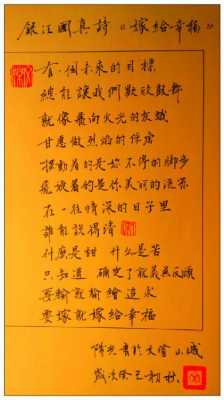 錄汪國真詩“嫁給幸福”
有一個未來的目標
總能讓我們歡欣鼓舞
就像飛向火光的灰蛾
甘愿做烈焰的俘虜
擺動着的是你不停的脚步
飛旋着的是你美丽的流苏
在一往情深的日子里
誰能說得清
什麽是甜 什么是苦
只知道 確定了就義無反顧
要輸就輸給追求
要嫁就嫁給幸福
書於大 山城
歲次癸巳初秋